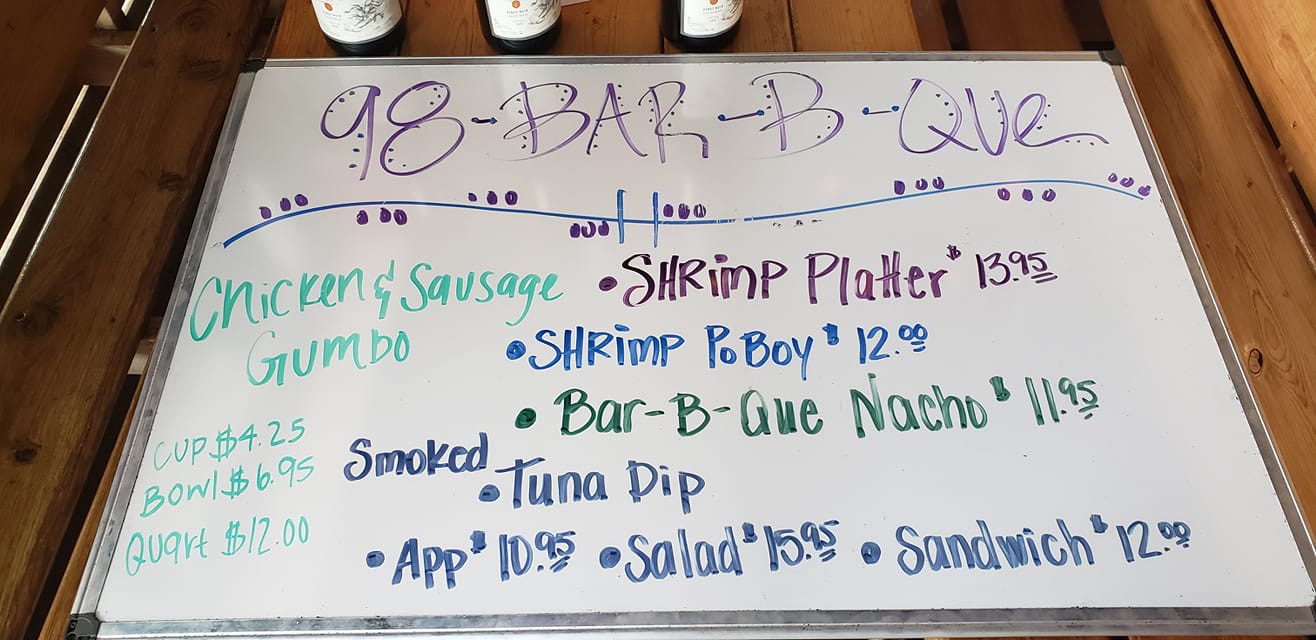 98-BAR-B-QUe
Chicken & Sausage
Gumbo
CUP $4.25
Bowl $6.95
Quart $12.00
• SHRimp Platter $13.95
• SHRimp PoBoy $12.00
• Bar-B-Que Nacho $11.95
Smoked
• Tuna Dip
• App $10.95 • Salad $15.95 • Sandwich $12.00